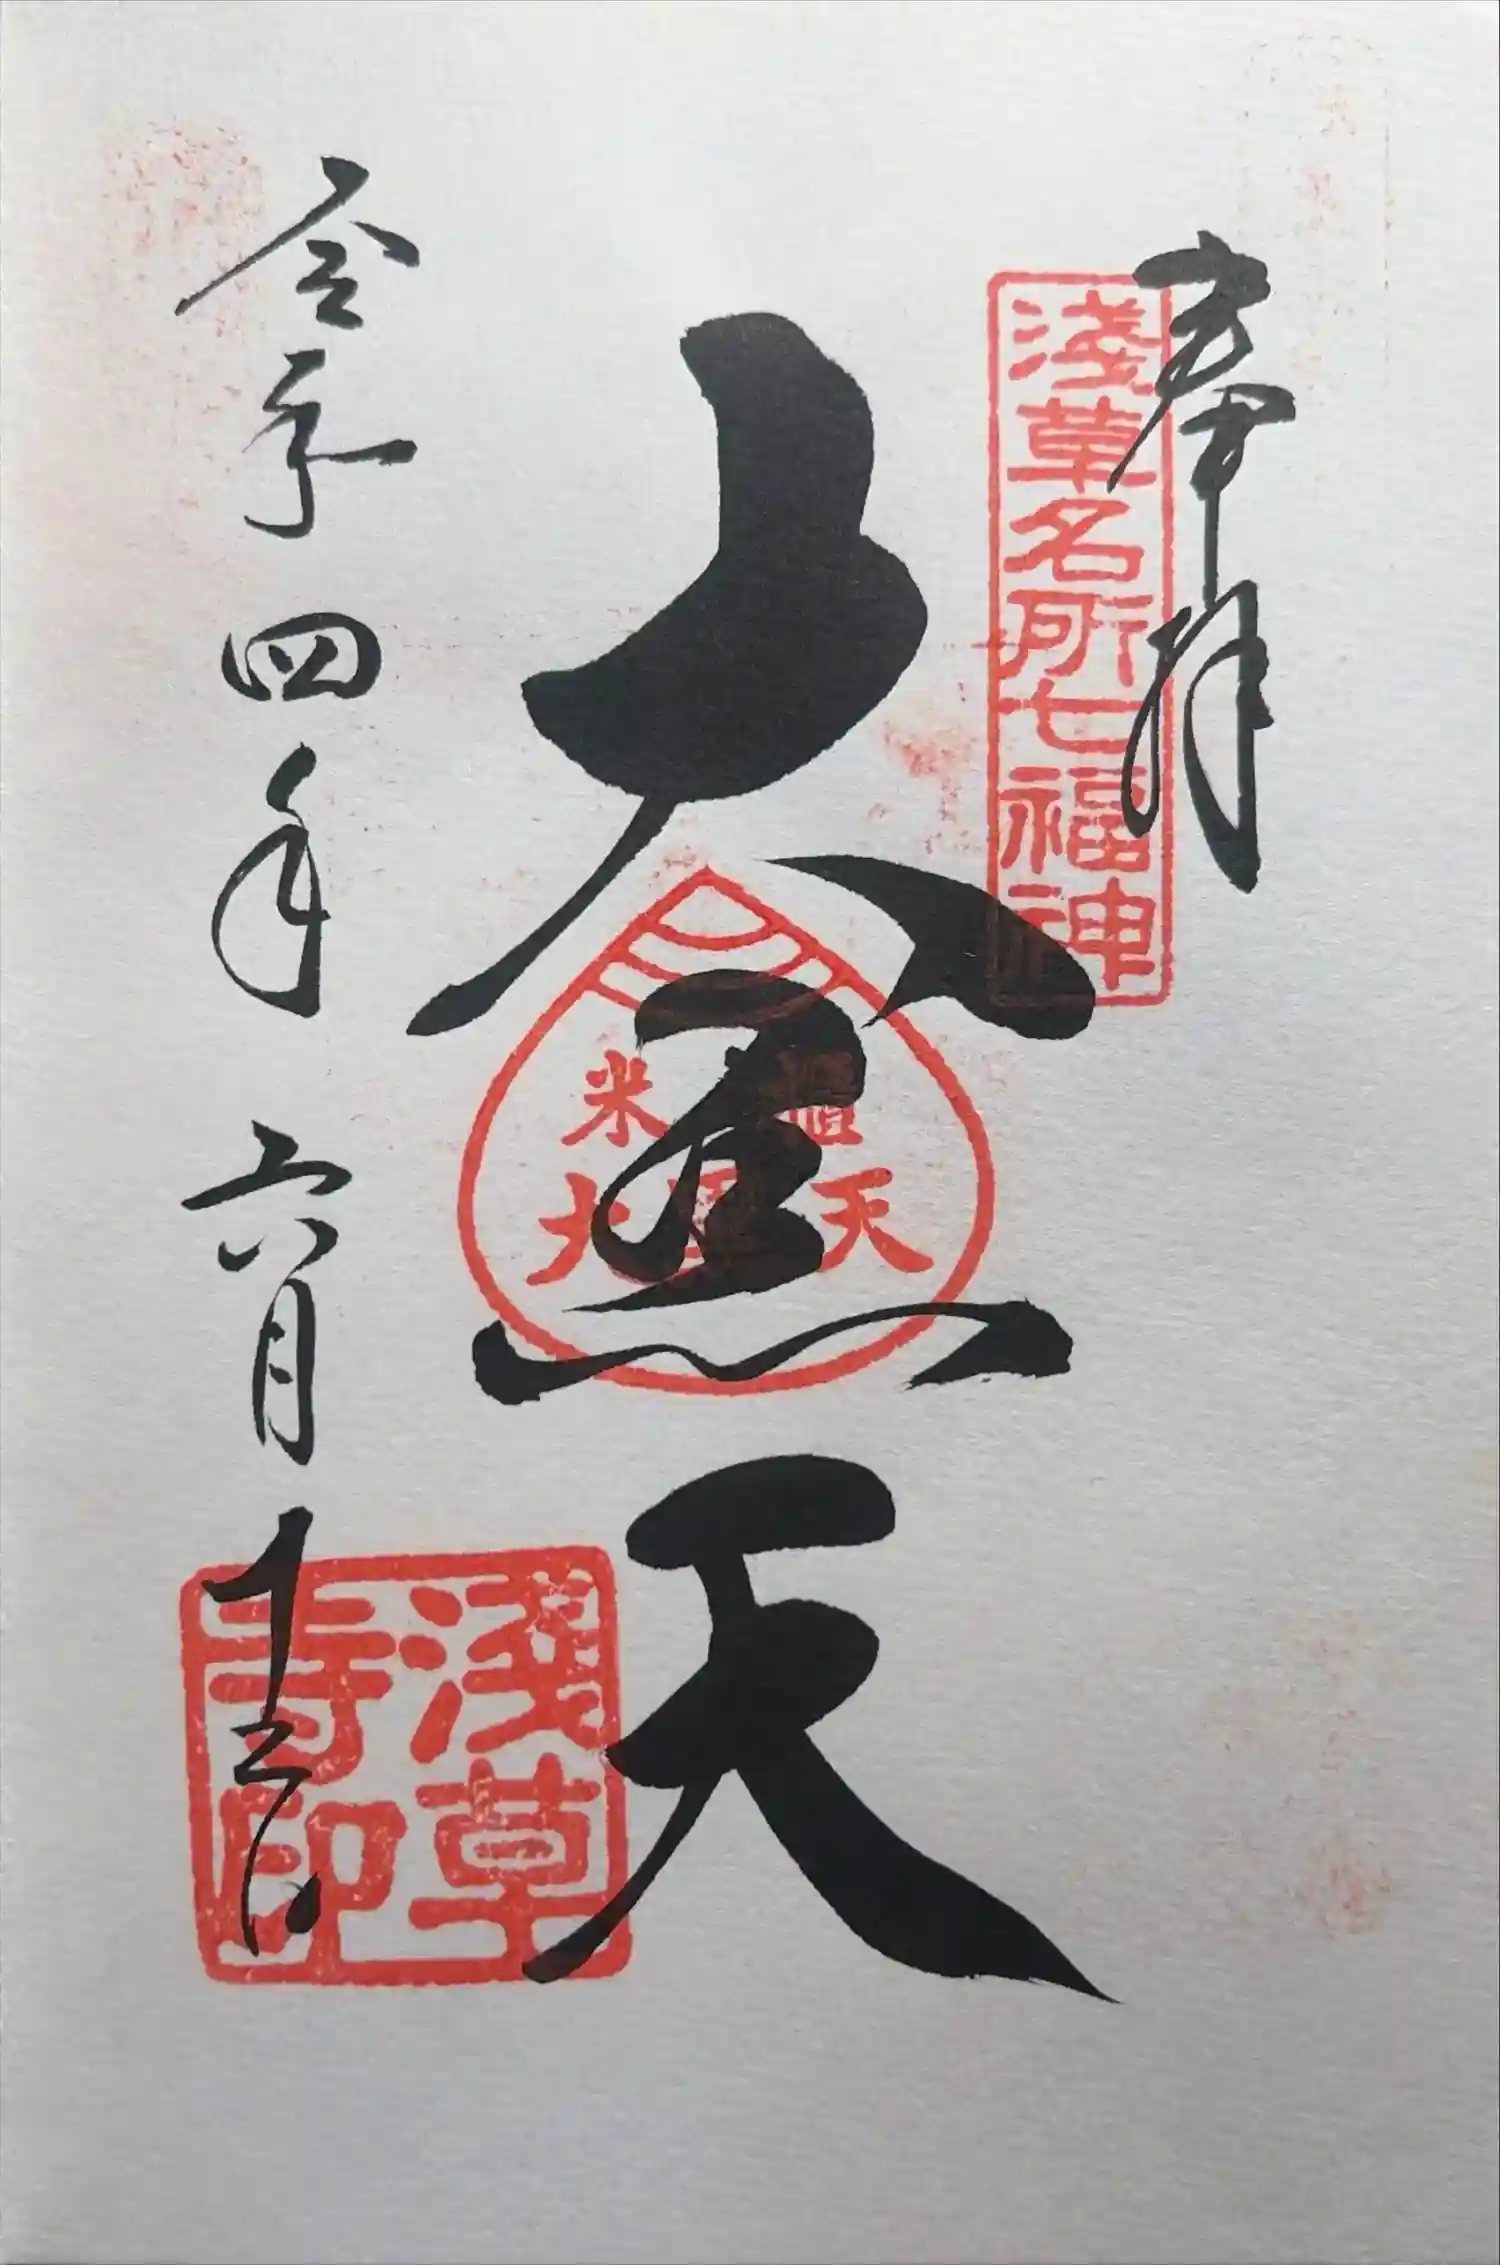 奉拝
淺草名所七福神
大黒天
米櫃
大黒天
令和四年六月十二日
淺草
寺印